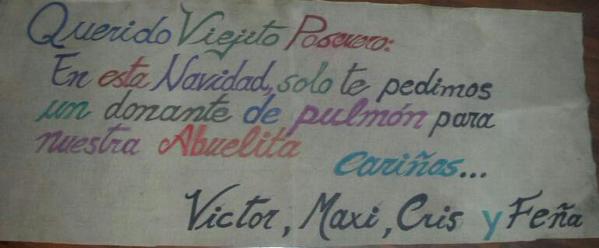 Querido Viejito Pascuero:
En esta Navidad, solo te pedimos
un donante de pulmón para
nuestra Abuelita
cariños...
Victor, Maxi, Cris y Feña